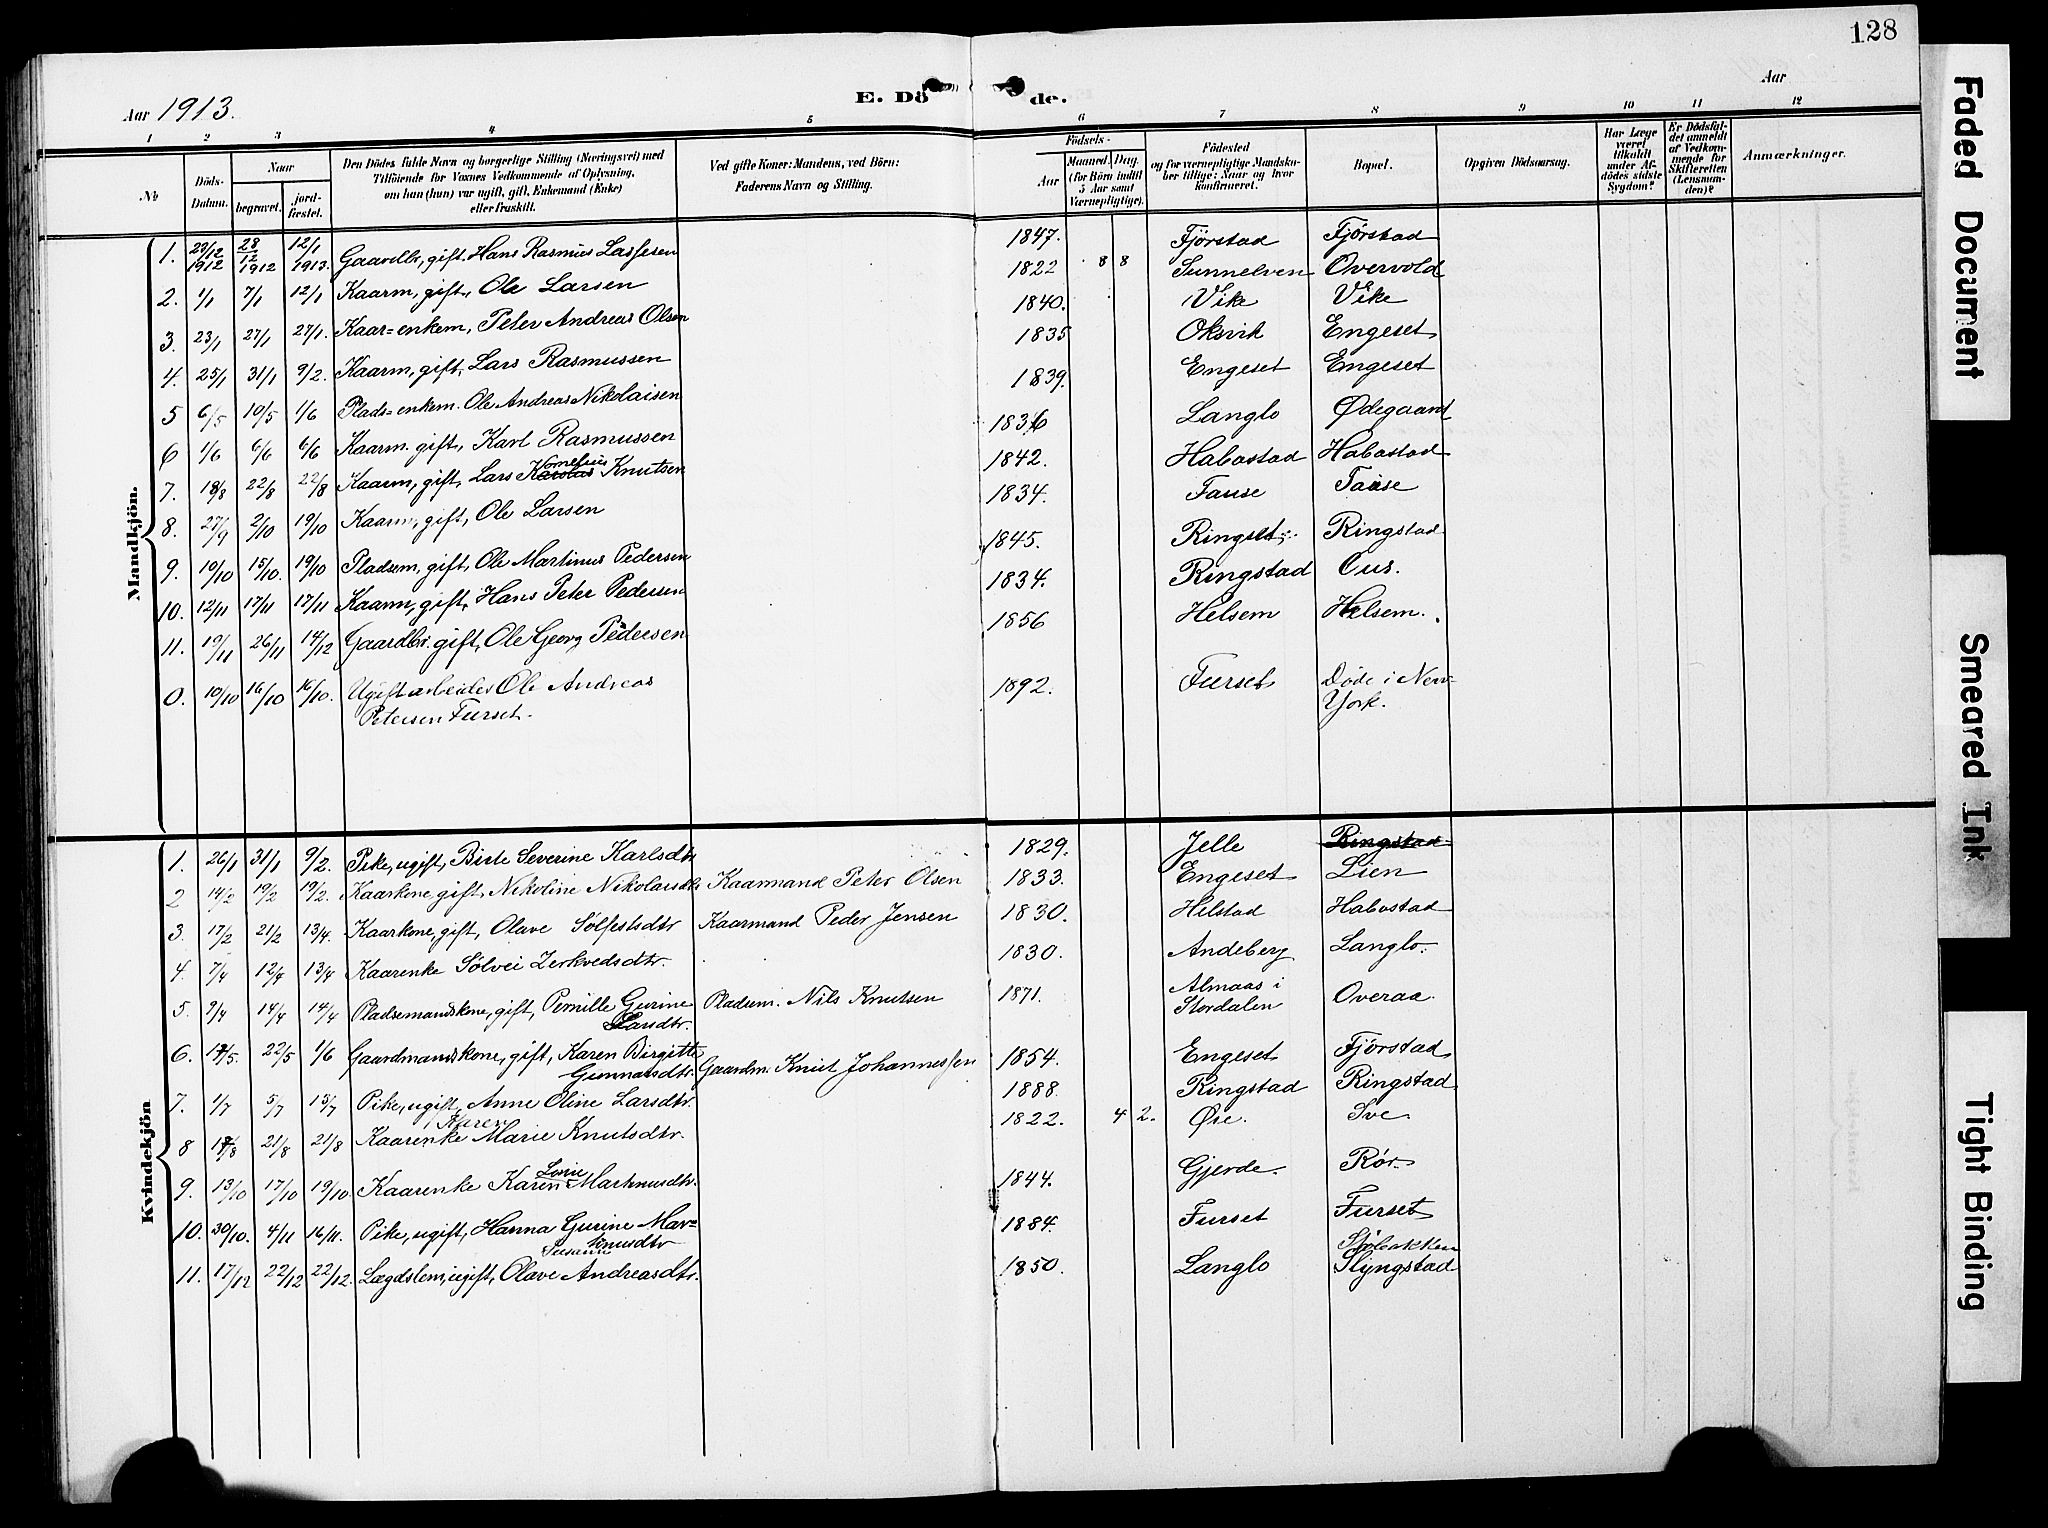 128
Aar 1913.
E. Dö de.
Aar
1 2 3 4 5 6 7 8 9 10 11 12
No
Döds-
Datum.
Naar
begravet.
jord-
fæstet.
Den Dödes fulde Navn og borgerlige Stilling (Næringsvei) med
Tilföiende for Voxnes Vedkommende af Oplysning,
om han (hun) var ugift, gift, Enkemand (Enke)
eller fraskilt.
Ved gifte Koner: Mandens, ved Börn:
Faderens Navn og Stilling.
Födsels-
Aar
Maaned. Dag.
(for Börn indtil
5 Aar samt
Værnepligtige).
Födested
og for værnepligtige Mandska-
ber tillige: Naar og hvor
konfirmeret.
Bopæl.
Opgiven Dödsaarsag.
Har Læge
været
tilkaldt
under Af-
dödes sidste
Sygdom?
Er Dödsfal-
det anmeldt
af Vedkom-
mende for
Skifteretten
(Lensman-
den)?
Anmærkninger.
Mandkjön.
1. 23/12 1912 28/12 1912 12/1 1913. Gaardbr, gift. Hans Rasmus Lassesen 1847. Fjörstad Fjörstad
2. 1/1 7/1 12/1 Kaarm, gift, Ole Larsen 1822 8 8 Sunnelven Overvold
3. 23/1 27/1 27/1. Kaar=enkem, Peter Andreas Olsen 1840. Vike Vike
4. 25/1 31/1 9/2. Kaarm, gift, Lars Rasmussen 1835 Oksvik Engeset
5 6/5 10/5 1/6 Plads=enkem. Ole Andreas Nikolaisen 1839. Engeset Engeset
6 1/6 6/6 6/6 Kaarm. gift, Karl Rasmussen 1836 Langlo Ødegaard
7. 18/8 22/8 22/8 Kaarm, gift, Lars Kornelius Knutsen 1842. Habostad Habostad
8. 27/9 2/10 19/10 Kaarm, gift, Ole Larsen 1834. Fause Fause
9. 10/10 15/10. 19/10 Pladsem, gift, Ole Martinus Pedersen 1845. Ringset Ringstad
10. 12/11 17/11 17/11 Kaarm, gift, Hans Peter Pedersen 1834. Ringstad Eus.
11. 19/11 26/11 14/12 Gaardbr. gift, Ole Georg Pedersen 1856 Helsem Helsem.
0. 10/10 16/10 16/10. Ugift arbeider Ole Andreas 1892. Furset Døde i New-
Petersen Furset. York.
Kvindekjön
1. 26/1 31/1 9/2. Pike, ugift, Birte Severine Karlsdtr 1829. Jelle Ringstad
2 14/2 19/2 19/2. Kaarkone, gift, Nikoline Nikolaisdtr Kaarmand Peter Olsen 1833. Engeset Lien
3. 17/2 21/2 13/4. Kaarkone, gift, Olave Sölfestsdtr Kaarmand Peder Jensen 1830. Helstad Habostad
4. 7/4 12/4 13/4 Kaarenke Sölvei Zerkvedsdtr. 1830. Andeberg Langlo.
5. 9/4 14/4 14/4 Pladsemandskone, gift, Pernille Gurine Pladsem. Nils Knutsen 1871. Almaas i
Larsdtr. Stordalen Overaa.
6. 17/5. 22/5 1/6 Gaardmandskone, gift, Karen Birgitte Gaardm. Knut Johannessen 1854. Engeset Fjörstad
Gunnarsdtr.
7. 1/7 5/7 13/7 Pike, ugift, Anne Oline Larsdtr. 1888. Ringstad Ringstad
Karen
8 17/8 21/8 21/8 Kaarenke Marie Knutsdtr. 1822. 4 2. Øie. Sve
Lovise
9. 13/10 17/10 19/10. Kaarenke Karen Martinusdtr. 1844. Gjerde. Rör.
10. 30/10. 4/11 16/11. Pike, ugift, Hanna Gurine Mar= 1884. Furset Furset
tinusdtr
Susanne Sjöbakken
11. 17/12 22/12 22/12. Lægdslem, ugift, Olave Andreasdtr. 1850. Langlo Slyngstad
Faded Document
Smeared Ink
Tight Binding